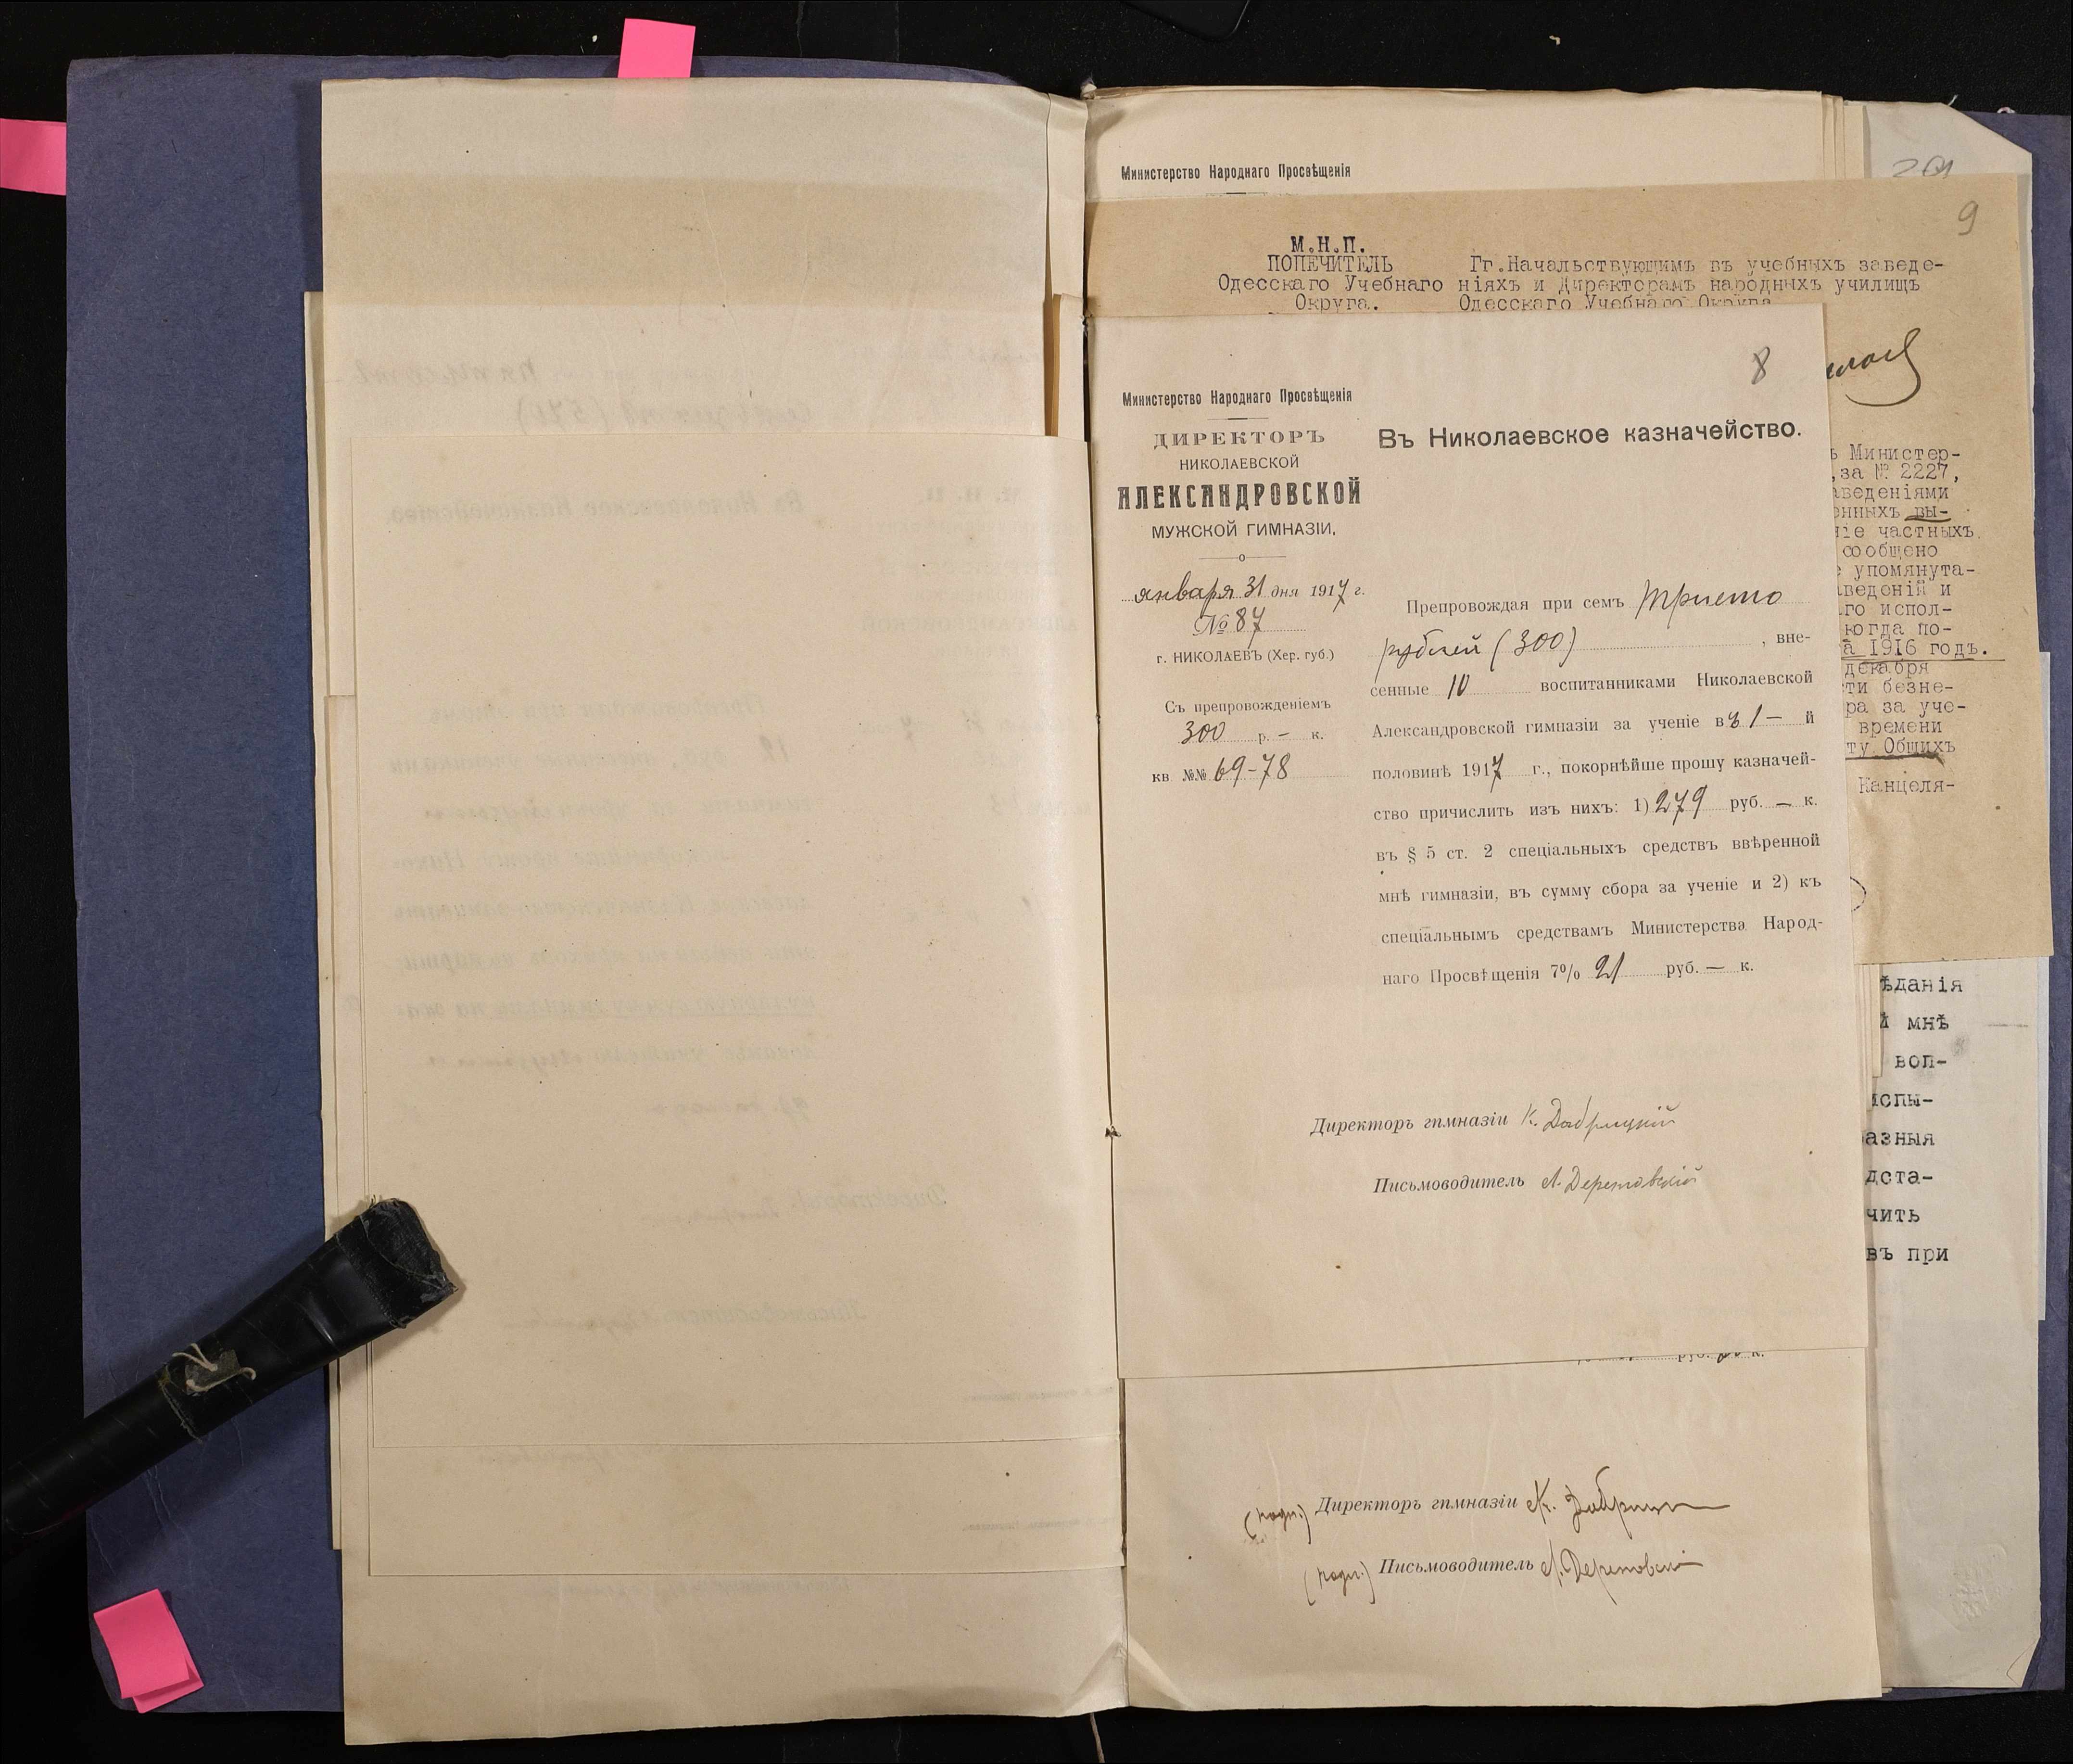 Министерство Народнаго Просвѣщенія
9
М.Н.П.
ПОПЕЧИТЕЛЬ
Одесскаго Учебнаго
Округа.
Гг.Начальствующимъ въ учебныхъ заведе-
ніяхъ и Директорамъ народныхъ училищъ
Одесскаго Учебнаго Округа
8
Министерство Народнаго Просвѣщенія
ДИРЕКТОРЪ
НИКОЛАЕВСКОЙ
АЛЕКСАНДРОВСКОЙ
МУЖСКОЙ ГИМНАЗІИ.
января 31 дня 1917 г.
№ 87
г. НИКОЛАЕВЪ (Хер. губ.)
Съ препровожденіемъ
300 р. — к.
кв. №№ 69-78
Въ Николаевское казначейство.
Препровождая при семъ триста
рублей (300) , вне-
сенные 10 воспитанниками Николаевской
Александровской гимназіи за ученіе въ 1 — й
половинѣ 1917 г., покорнѣйше прошу казначей-
ство причислить изъ нихъ: 1) 279 руб. — к.
въ § 5 ст. 2 спеціальныхъ средствъ ввѣренной
мнѣ гимназіи, въ сумму сбора за ученіе и 2) къ
спеціальнымъ средствамъ Министерства Народ-
наго Просвѣщенія 7% 21 руб. — к.
Директоръ гимназіи К. Добрицкій
Письмоводитель А. Деретовскій
ъ Министер-
,за № 2227,
аведеніями
нныхъ вы-
ніе частныхъ
сообщено
упомянута-
веденій и
го испол-
когда по-
а 1916 годъ.
декабря
ти безне-
ра за уче-
времени
ту Общихъ
Канцеля-
ѣданія
й мнѣ
воп-
испы-
азныя
дста-
чить
въ при
руб. к.
(подп.) Директоръ гимназіи К. Добрицк
(подп.) Письмоводитель А. Деретовскі